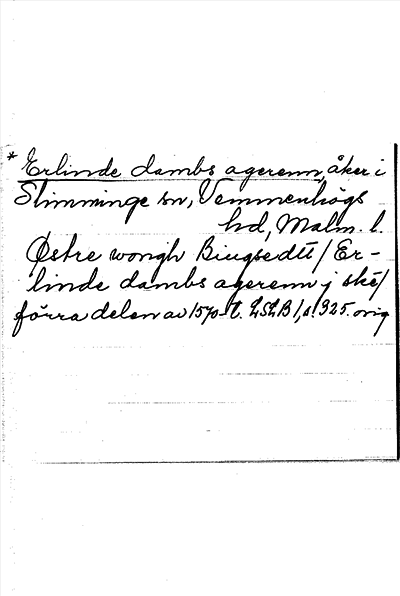 * Erlinde dambs agerenn, åker i
Slimminge sn, Vemmenhögs
hd, Malm. l.
Østre wongh Biugsedtt / Er-
linde dambs agerenn j ské/
förra delen av 1570-t. LSLB 1, s. 325. orig